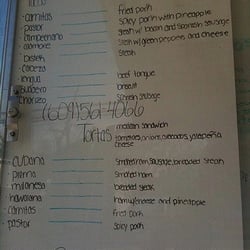 Tacos
- carnitas fried pork
- pastor spicy pork with pineapple
- campechano steak w/ bacon and Spanish sausage
- alambre steak w/ green peppers and cheese
- bistek steak
- cabeza
- lengua beef tongue
- suadero brisket
- chorizo Spanish sausage
(609) 561 4066
Tortas mexican sandwich
tomatoes, onions, avocados, jalapeños, cheese
- cubana smoked ham, sausage, breaded steak
- pierna smoked ham
- milanesa breaded steak
- hawaiana ham w/ cheese and pineapple
- carnitas fried pork
- pastor spicy pork